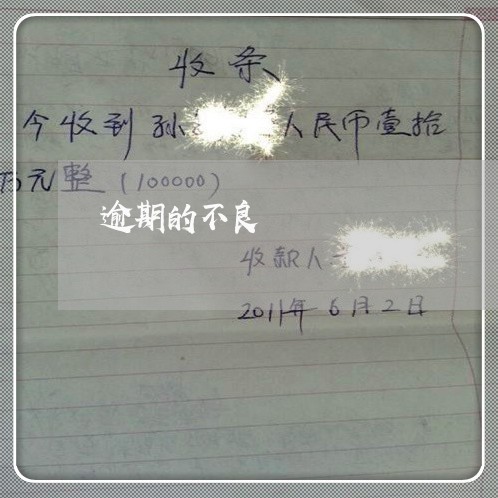 收条
今收到孙 人民币壹拾
万元整(100000)
逾期的不良
收款人
2011年6月2日